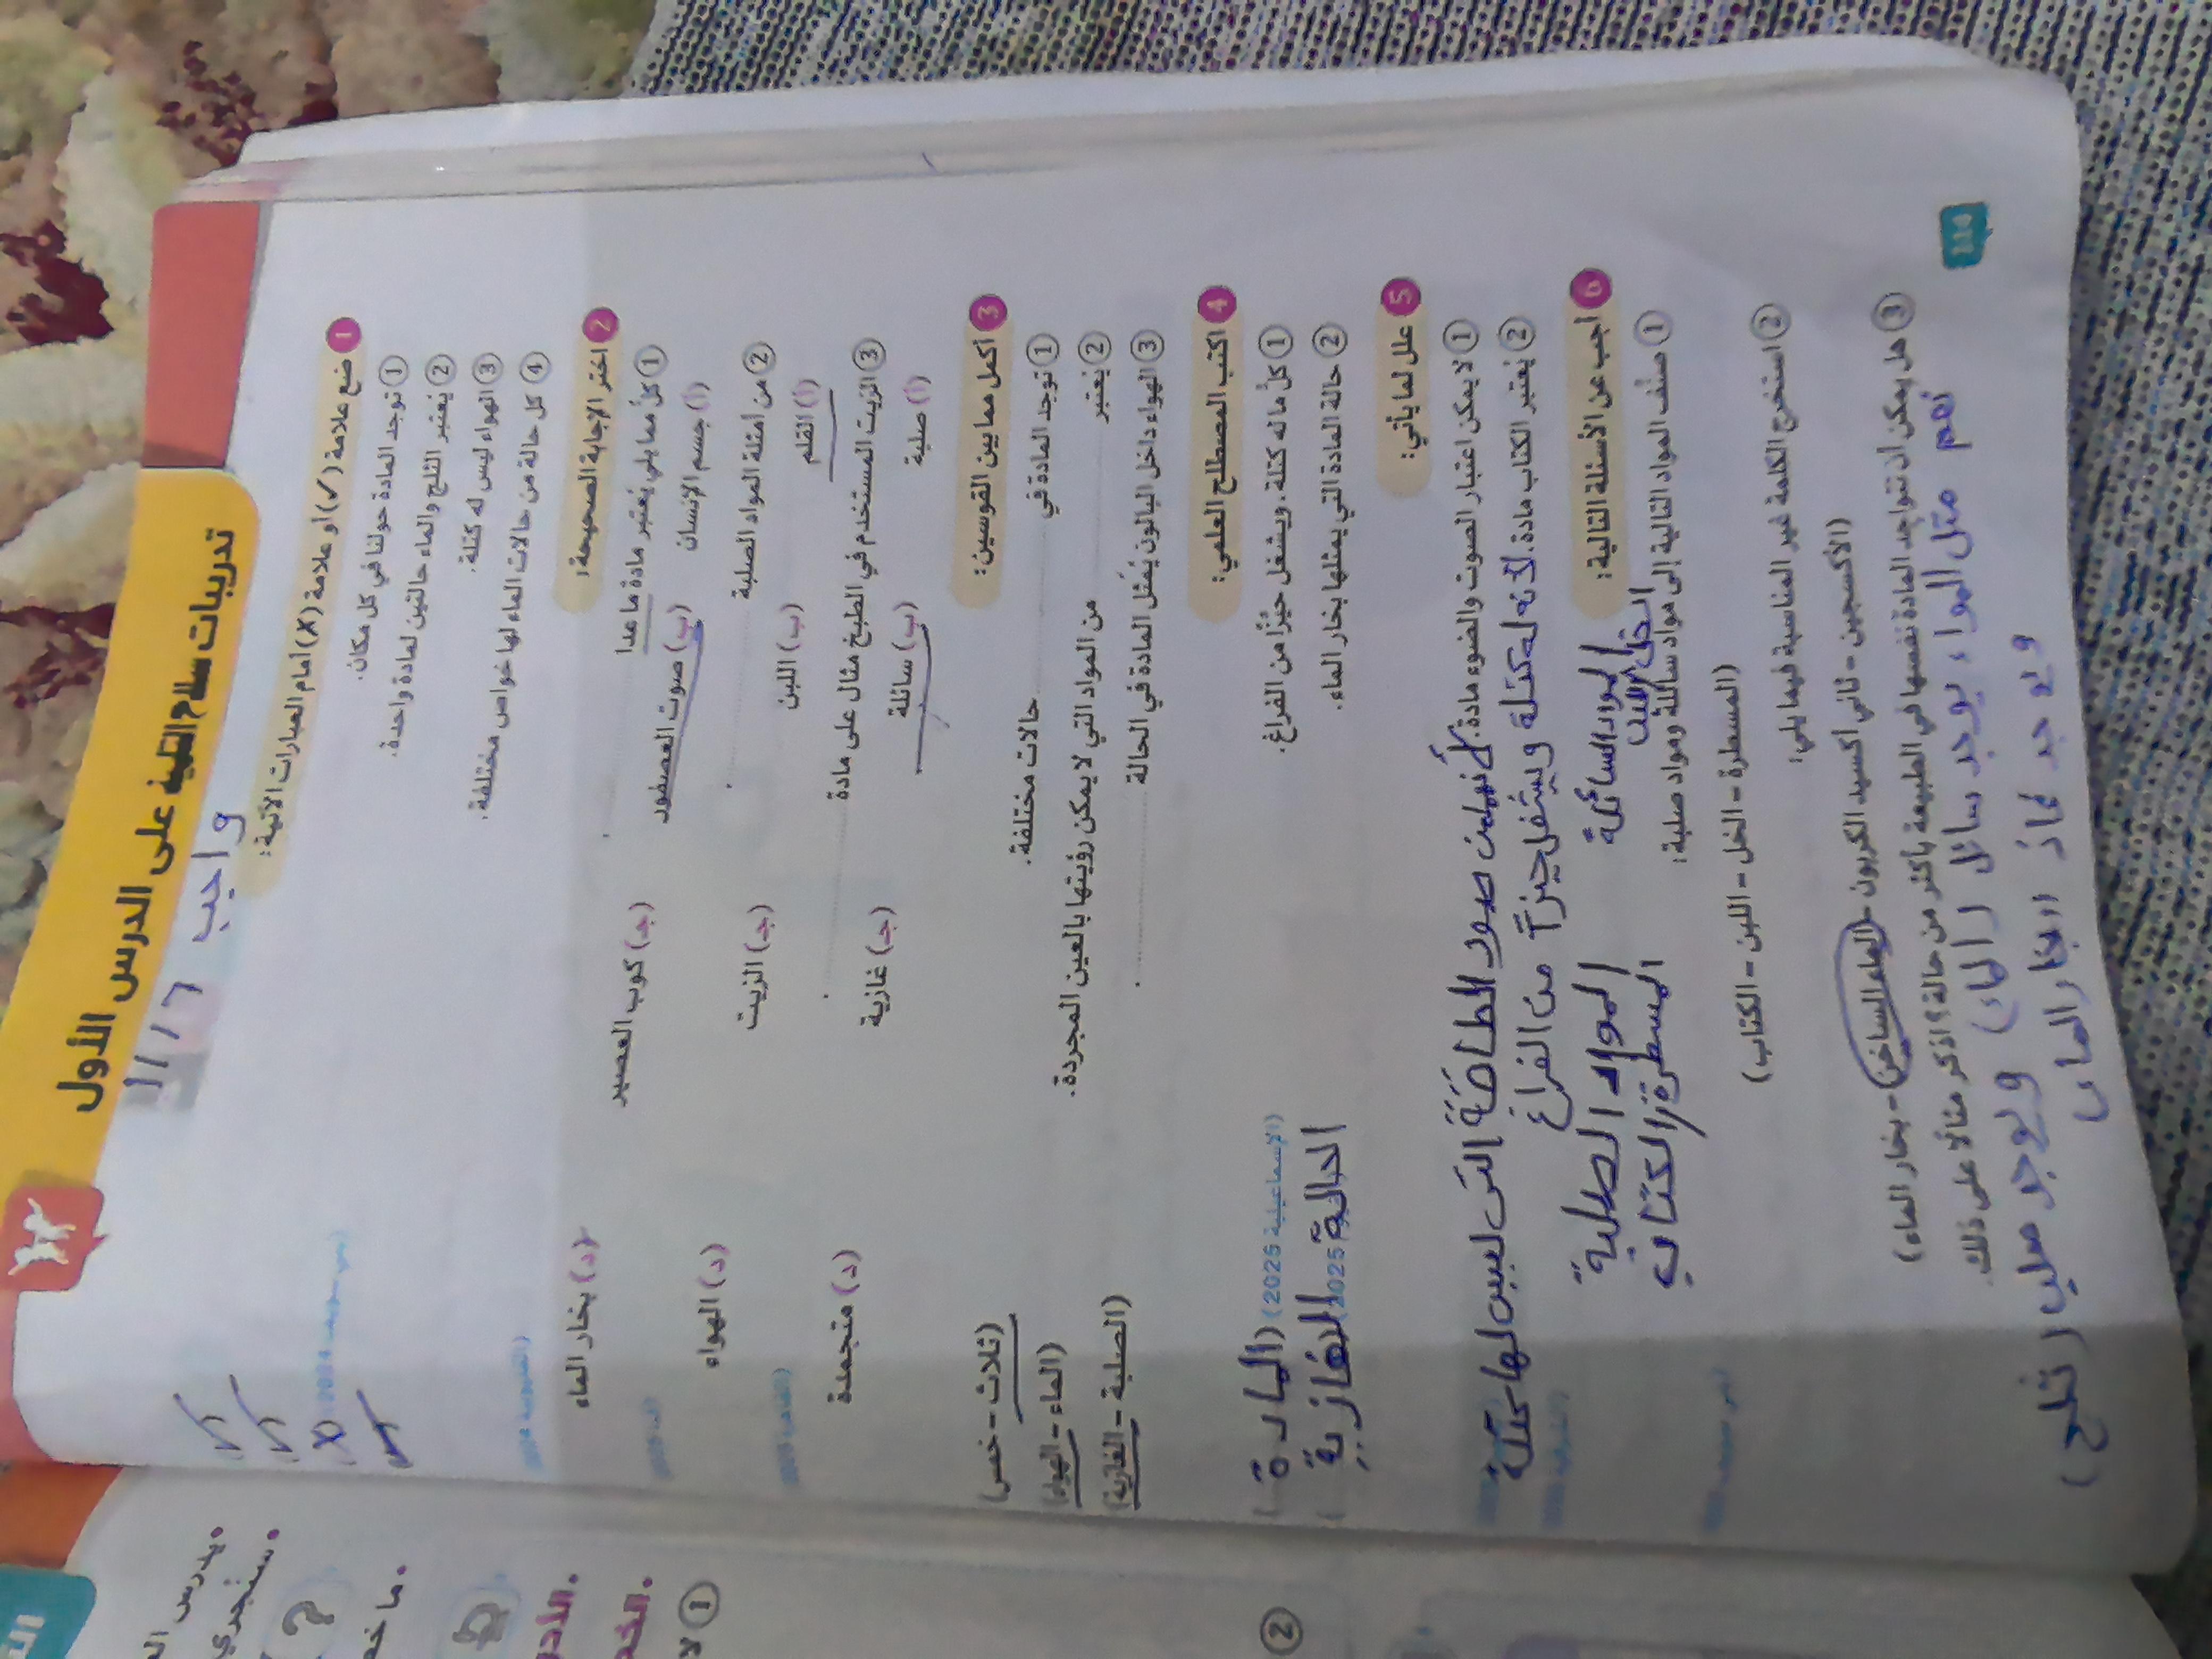 تدريبات سلاح التلميذ على الدرس الأول
واجب
1 ضع علامة (✓) أو علامة (X) أمام العبارات الآتية:
1 توجد المادة حولنا في كل مكان.
2 يُعتبر الثلج والماء حالتين لمادة واحدة.
3 الهواء ليس له كتلة. (X)
4 كل حالة من حالات الماء لها خواص مختلفة.
2 اختر الإجابة الصحيحة:
1 كلٌّ مما يلي يُعتبر مادة ما عدا
(أ) جسم الإنسان (ب) صوت العصفور (جـ) كوب العصير (د) بخار الماء
2 من أمثلة المواد الصلبة
(أ) القلم (ب) اللبن (جـ) الزيت (د) الهواء
3 الزيت المستخدم في الطبخ مثال على مادة
(أ) صلبة (ب) سائلة (جـ) غازية (د) متجمدة
3 أكمل مما بين القوسين:
1 توجد المادة في حالات مختلفة. (ثلاث - خمس)
2 يُعتبر من المواد التي لا يمكن رؤيتها بالعين المجردة. (الماء - الهواء)
3 الهواء داخل البالون يُمثل المادة في الحالة (الصلبة - الغازية)
4 اكتب المصطلح العلمي:
1 كلُّ ما له كتلة، ويشغل حيّزًا من الفراغ. (المادة) (الإسماعيلية 2025)
2 حالة المادة التي يمثلها بخار الماء. الحالة الغازية 2025)
5 علل لما يأتي:
1 لا يمكن اعتبار الصوت والضوء مادة. من صور الطاقة التى ليس لها كتلة
2 يُعتبر الكتاب مادة. لأنه له كتلة ويشغل حيزاً من الفراغ
6 أجب عن الأسئلة التالية: المواد السائلة المواد الصلبة
الخل اللبن المسطرة الكتاب
1 صنّف المواد التالية إلى مواد سائلة ومواد صلبة:
(المسطرة - الخل - اللبن - الكتاب)
2 استخرج الكلمة غير المناسبة فيما يلي:
(الأكسجين - ثاني أكسيد الكربون - الماء الساخن - بخار الماء)
3 هل يمكن أن تتواجد المادة نفسها في الطبيعة بأكثر من حالة؟ اذكر مثالًا على ذلك.
نعم مثل الهواء يوجد سائل (الماء) ويوجد صلب (ثلج)
ويوجد غاز
يدرس
ستجدي
?
ما خ
1 لا
2